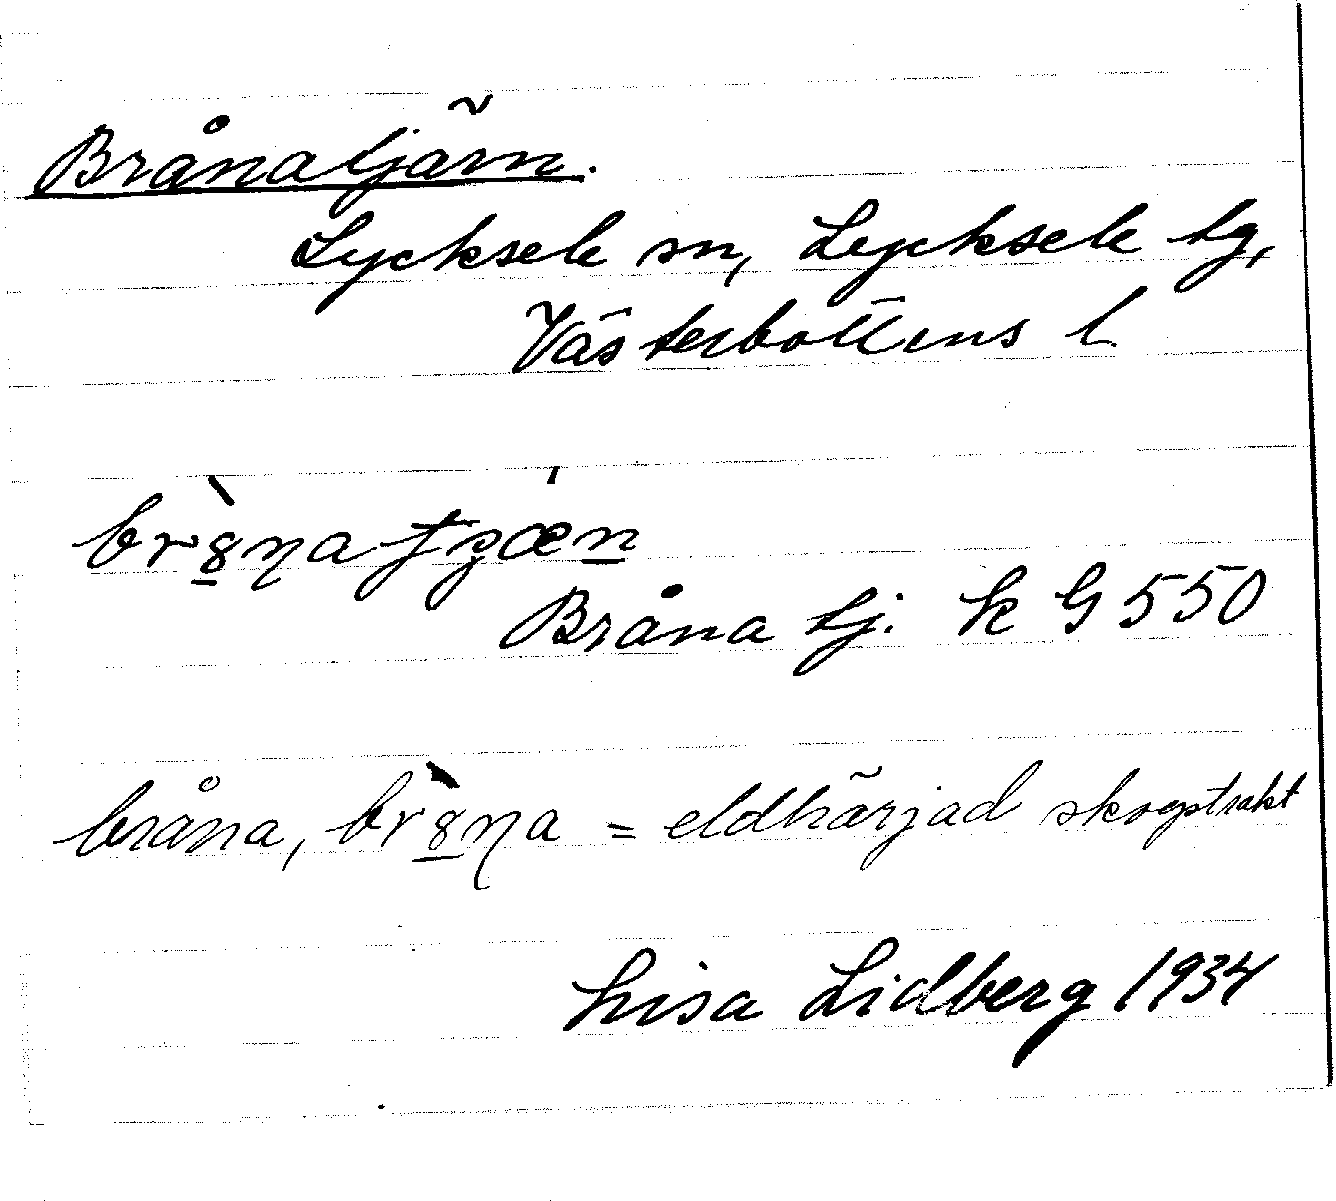 Brånatjärn.
Lycksele sn, Lycksele lg,
Västerbottens l
br8̲̀ŋa ʈȥǽn̲
Bråna tj. k G 550
bråna, br8̲̀ŋa = eldhärjad skogstrakt
Lisa Lidberg 1934